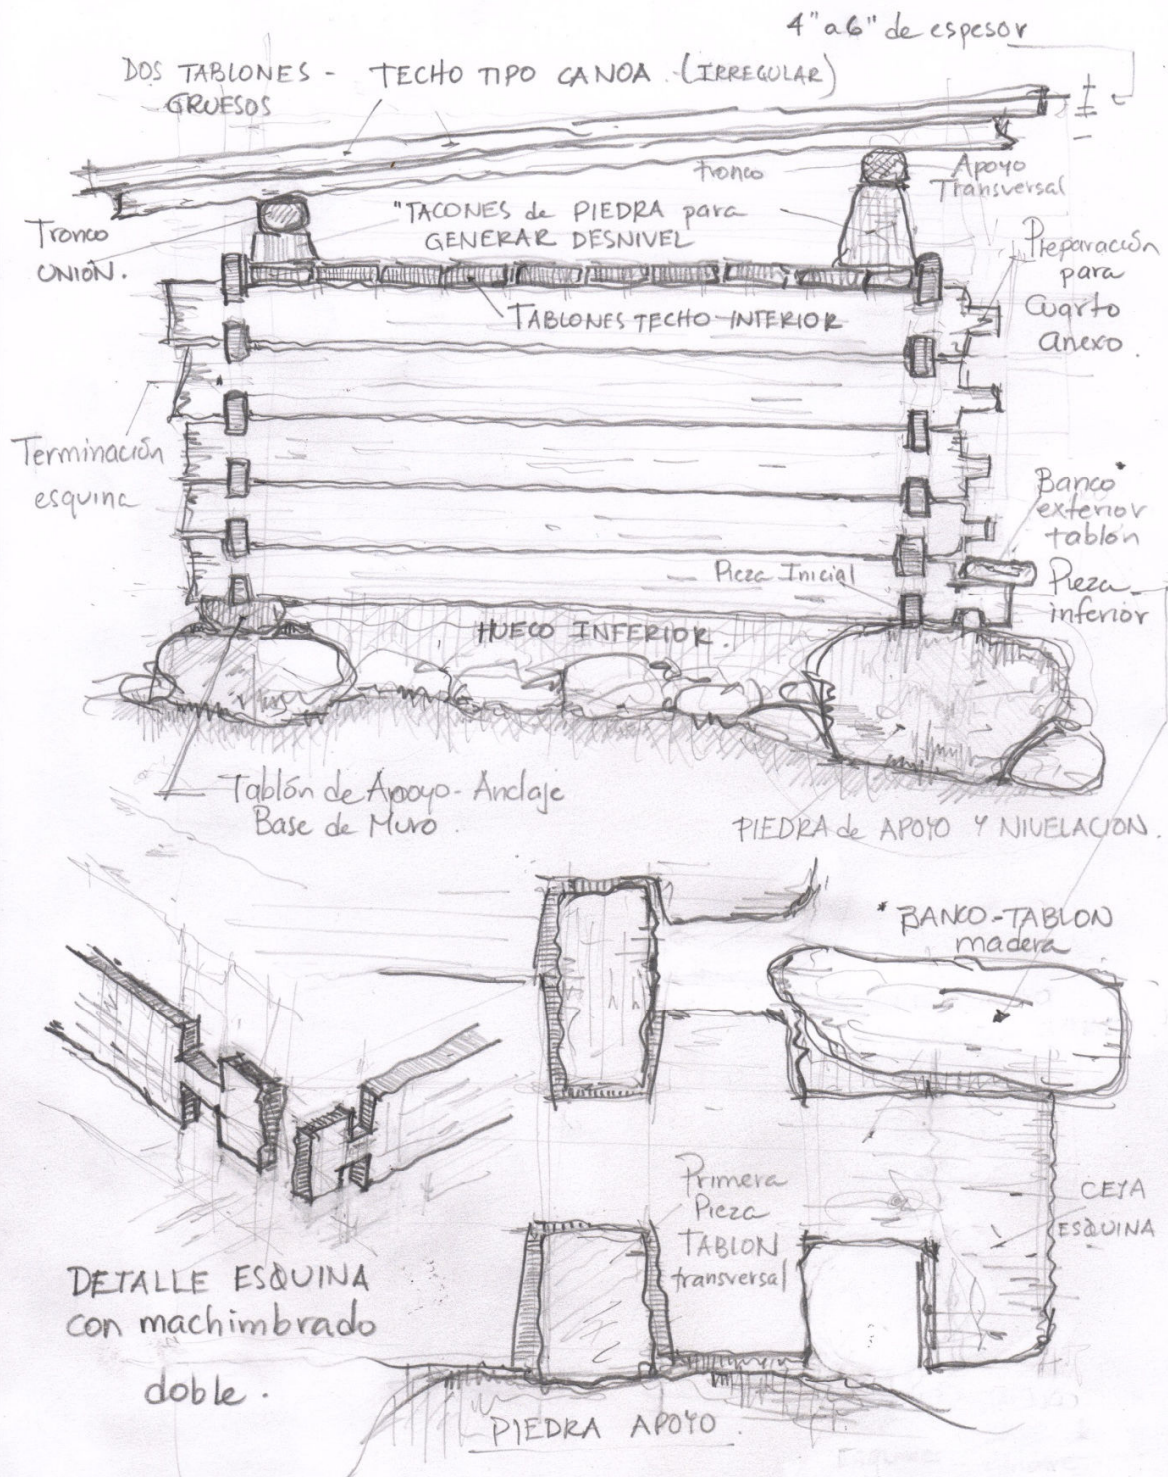 4" a 6" de espesor
DOS TABLONES - TECHO TIPO CANOA (IRREGULAR)
GRUESOS
tronco
Apoyo
Transversal
Tronco
UNIÓN.
"TACONES de PIEDRA para
GENERAR DESNIVEL
Preparación
para
cuarto
anexo.
TABLONES TECHO-INTERIOR
Terminación
esquina
Banco*
exterior
tablón
Pieza Inicial
Pieza
inferior
HUECO INFERIOR.
Tablón de Apoyo-Anclaje
Base de Muro.
PIEDRA de APOYO Y NIVELACION.
* BANCO-TABLON
madera
Primera
Pieza
TABLON
transversal
CEYA
ESQUINA
DETALLE ESQUINA
con machimbrado
doble.
PIEDRA APOYO.